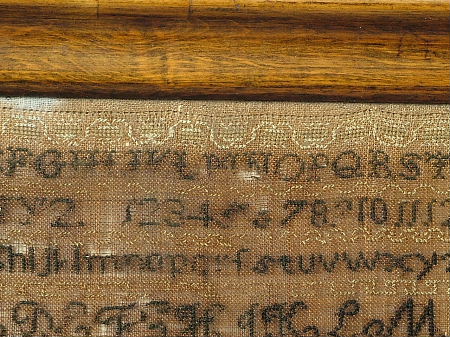 F G H I J K L M N O P Q R S T
Y Z 1 2 3 4 5 6 7 8 9 10 11 12
h i j k l m n o p q r f s t u v w x y
D E F G H I K L M